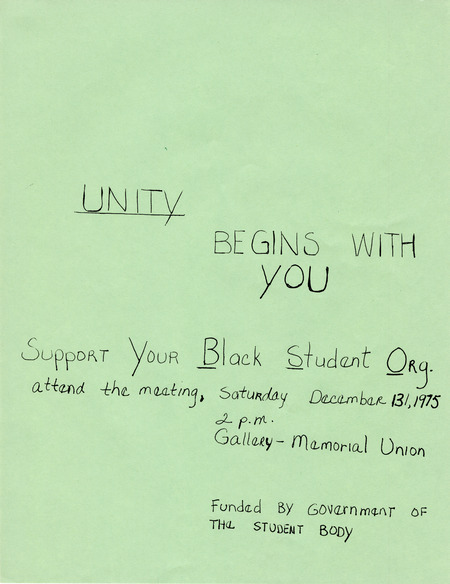 UNITY
BEGINS WITH
YOU
Support Your Black Student Org.
attend the meeting, Saturday December 13, 1975
2 p.m.
Gallery - Memorial Union
Funded By Government of
The Student Body